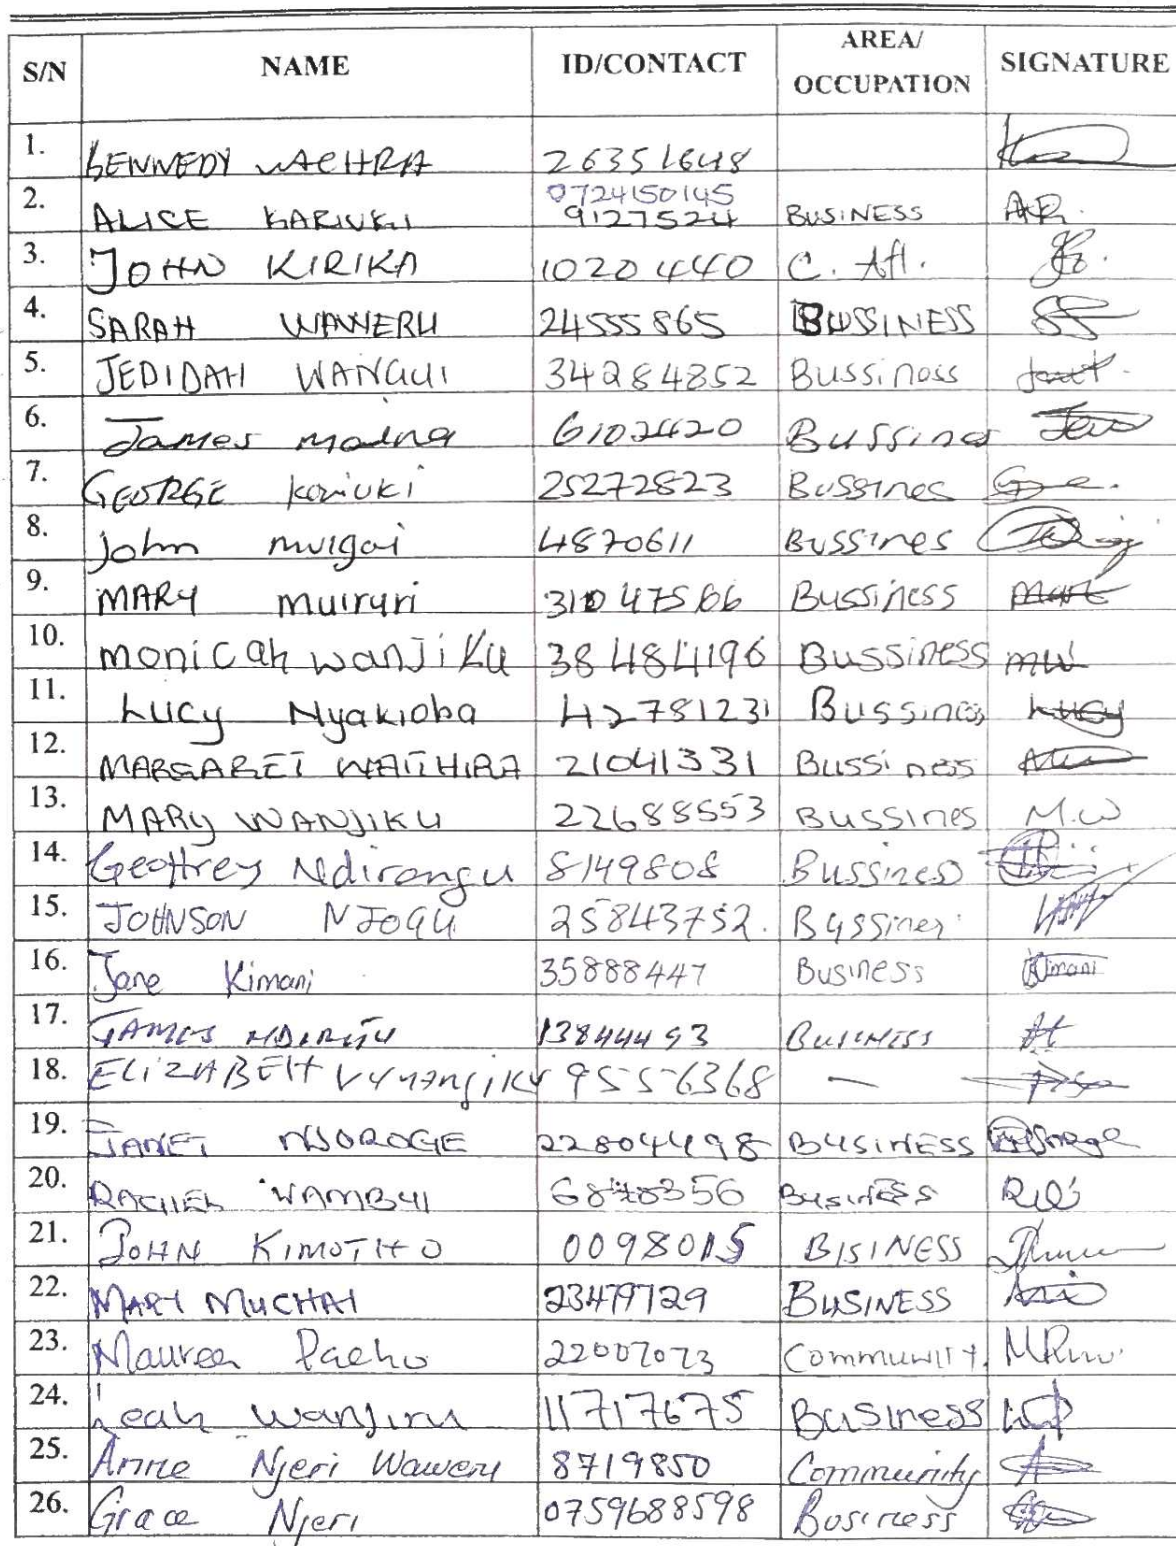 S/N NAME ID/CONTACT AREA/ OCCUPATION SIGNATURE
1. KENNEDY WACHIRA 26351648
2. ALICE KARIUKI 0724150145 9127524 BUSINESS
3. JOHN KIRIKA 10204440 C. Afl.
4. SARAH WAWERU 24555865 BUSSINESS
5. JEDIDAH WANGUI 34284852 Bussinoss
6. James maina 6102420 Bussines
7. GEORGE kariuki 25272823 Bussines
8. john muigai 4870611 Bussines
9. MARY muiruri 31047566 Bussiness
10. monicah wanjiku 38484196 Bussiness mw
11. Lucy Nyakioba 42781231 Bussiness Lucy
12. MARGARET WAITHIRA 21041331 Bussiness
13. MARY WANJIKU 22688553 Bussines M.W
14. Geoffrey Ndirangu 8149808 Bussines
15. JOHNSON NJOGU 25843752. Bussines
16. Jane Kimani 35888447 Business Kimani
17. JAMES NDIRITU 13844493 Business
18. ELIZABETH Wanjiku 9556368 —
19. JANET NJOROGE 22804498 BUSINESS
20. RACHEL WAMBUI 6878356 BUSINESS
21. JOHN KIMOTHO 0098015 BISINESS
22. MARY MUCHAI 23479729 BUSINESS
23. Maureen 22007073 Community.
24. Leah Wanjiru 11717675 Business
25. Anne Njeri Waweru 8719850 Community
26. Grace Njeri 0759688598 Business